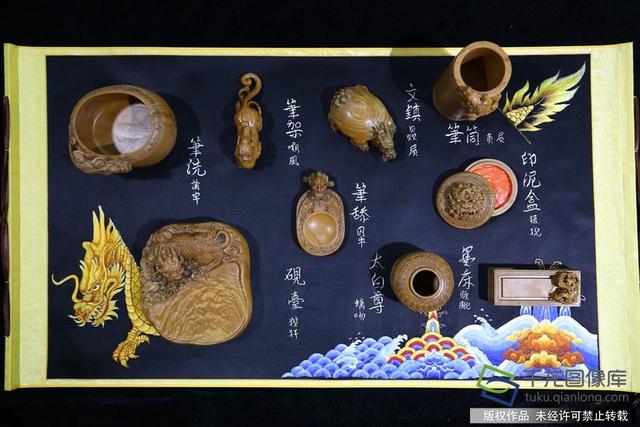 筆洗 蒲牢
筆架 嘲風
文鎮
筆筒
印泥盒 狻猊
筆舔 囚牛
硯臺 狴犴
太白尊 螭吻
墨床
千龙图像库
tuku.qianlong.com
版权作品 未经许可禁止转载